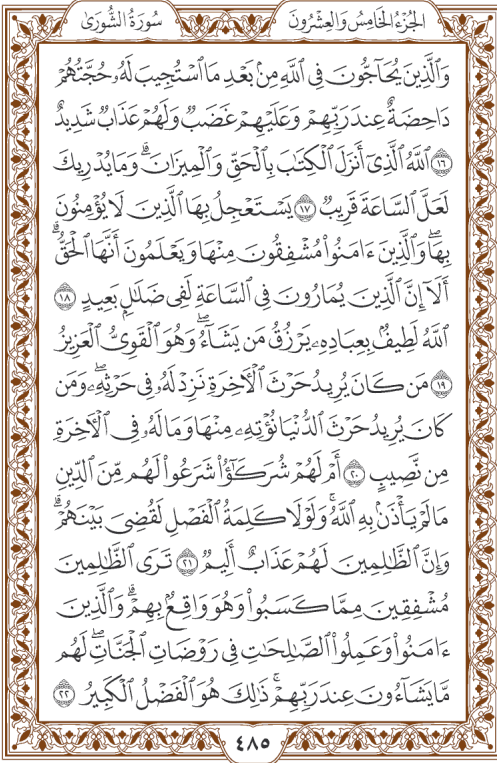 سُورَةُ الشُّورَىٰ
الجُزْءُ الخَامِسُ وَالعِشْرُونَ
وَالَّذِينَ يُحَاجُّونَ فِي اللَّهِ مِنۢ بَعْدِ مَا اسْتُجِيبَ لَهُۥ حُجَّتُهُمْ
دَاحِضَةٌ عِندَ رَبِّهِمْ وَعَلَيْهِمْ غَضَبٌ وَلَهُمْ عَذَابٌ شَدِيدٌ
١٦ اللَّهُ الَّذِي أَنزَلَ الْكِتَٰبَ بِالْحَقِّ وَالْمِيزَانَ ۗ وَمَا يُدْرِيكَ
لَعَلَّ السَّاعَةَ قَرِيبٌ ١٧ يَسْتَعْجِلُ بِهَا الَّذِينَ لَا يُؤْمِنُونَ
بِهَا ۖ وَالَّذِينَ ءَامَنُوا مُشْفِقُونَ مِنْهَا وَيَعْلَمُونَ أَنَّهَا الْحَقُّ ۗ
أَلَا إِنَّ الَّذِينَ يُمَارُونَ فِي السَّاعَةِ لَفِي ضَلَٰلٍۭ بَعِيدٍ ١٨
اللَّهُ لَطِيفٌۢ بِعِبَادِهِۦ يَرْزُقُ مَن يَشَآءُ ۖ وَهُوَ الْقَوِيُّ الْعَزِيزُ
١٩ مَن كَانَ يُرِيدُ حَرْثَ الْأَخِرَةِ نَزِدْ لَهُۥ فِي حَرْثِهِۦ ۖ وَمَن
كَانَ يُرِيدُ حَرْثَ الدُّنْيَا نُؤْتِهِۦ مِنْهَا وَمَا لَهُۥ فِي الْأَخِرَةِ
مِن نَّصِيبٍ ٢٠ أَمْ لَهُمْ شُرَكَٰٓؤُا شَرَعُوا لَهُم مِّنَ الدِّينِ
مَا لَمْ يَأْذَنۢ بِهِ اللَّهُ ۚ وَلَوْلَا كَلِمَةُ الْفَصْلِ لَقُضِيَ بَيْنَهُمْ ۗ
وَإِنَّ الظَّٰلِمِينَ لَهُمْ عَذَابٌ أَلِيمٌ ٢١ تَرَى الظَّٰلِمِينَ
مُشْفِقِينَ مِمَّا كَسَبُوا وَهُوَ وَاقِعٌۢ بِهِمْ ۗ وَالَّذِينَ
ءَامَنُوا وَعَمِلُوا الصَّٰلِحَٰتِ فِي رَوْضَاتِ الْجَنَّاتِ ۖ لَهُم
مَّا يَشَآءُونَ عِندَ رَبِّهِمْ ۚ ذَٰلِكَ هُوَ الْفَضْلُ الْكَبِيرُ ٢٢
٤٨٥